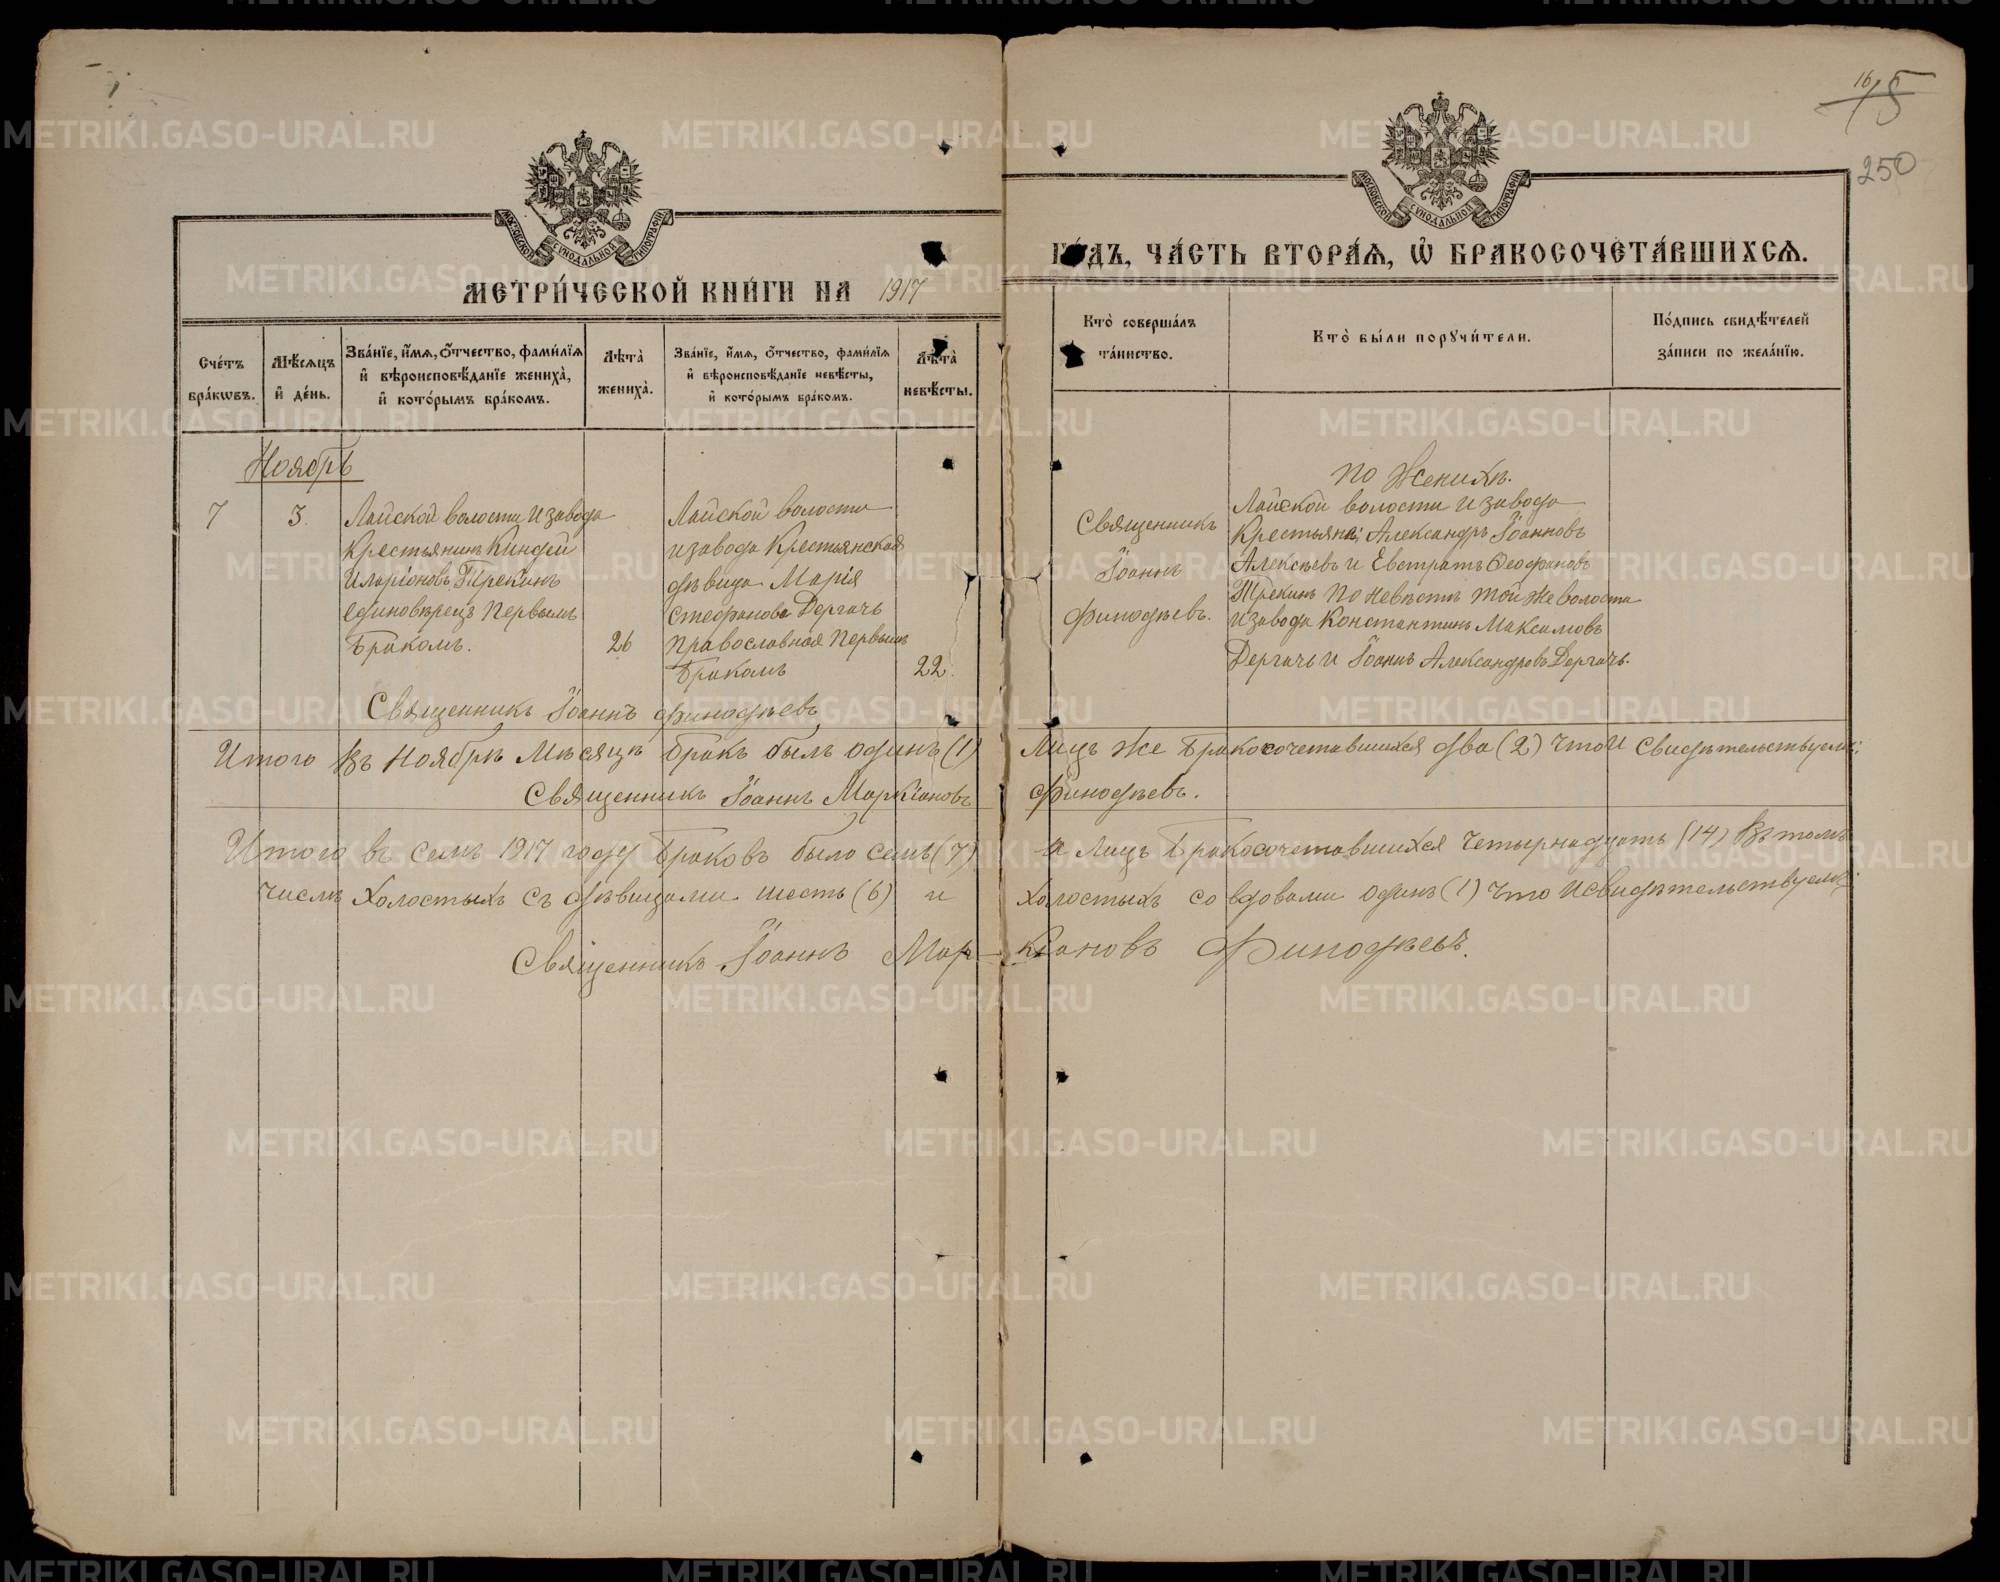 16/15
250
МОСКОВСКОЙ СѴНОДАЛЬНОЙ ТИПОГРАФІИ
МОСКОВСКОЙ СѴНОДАЛЬНОЙ ТИПОГРАФІИ
МЕТРИ́ЧЕСКОЙ КНИ́ГИ НА 1917
ГО́ДЪ, ЧА́СТЬ ВТОРА́Ѧ, Ѽ БРАКОСОЧЕТА́ВШИХСѦ.
Сче́тъ бра́кѡвъ.
Мѣ́сѧцъ и҆ де́нь.
Зва́нїе, и҆́мѧ, ѻ҆́тчество, фами́лїѧ и҆ вѣроисповѣ́данїе жениха̀, и҆ кото́рымъ бра́комъ.
Лѣта̀ жениха̀.
Зва́нїе, и҆́мѧ, ѻ҆́тчество, фами́лїѧ и҆ вѣроисповѣ́данїе невѣ́сты, и҆ кото́рымъ бра́комъ.
Лѣта̀ невѣ́сты.
Кто̀ соверша́лъ та́инство.
Кто̀ бы́ли порꙋчи́тели.
По́дпись свидѣ́телей за́писи по жела́нїю.
Ноябрь
7
3.
Лайской волости и завода
Крестьянинъ Киндей
Иларіоновъ Трекинъ
единовѣрецъ Первымъ
Бракомъ.
26
Лайской волости
и завода Крестьянская
дѣвица Марія
Стефанова Дергачъ
Православная Первымъ
Бракомъ
22.
Священникъ
Іоаннъ
Финодѣевъ.
По Женихѣ.
Лайской волости и завода
Крестьяне; Александръ Іоанновъ
Алексѣевъ и Евстратъ Феофановъ
Трекинъ По невѣстѣ той же волости
и завода Константинъ Максимовъ
Дергачъ и Іоаннъ Александровъ Дергачъ.
Священникъ Іоаннъ Финодѣевъ
Итого въ Ноябрѣ Мѣсяцѣ бракъ былъ одинъ (1) Лицъ же Бракосочетавшихся два (2) что и свидѣтельствуемъ:
Священникъ Іоаннъ Маркіановъ Финодѣевъ.
Итого въ семъ 1917 году Браковъ было семь (7) а Лицъ Бракосочетавшихся четырнадцать (14) въ томъ
числѣ холостыхъ съ дѣвицами шесть (6) и холостыхъ со вдовами одинъ (1) что и свидѣтельствуемъ:
Священникъ Іоаннъ Маркіановъ Финодѣевъ.
METRIKI.GASO-URAL.RU